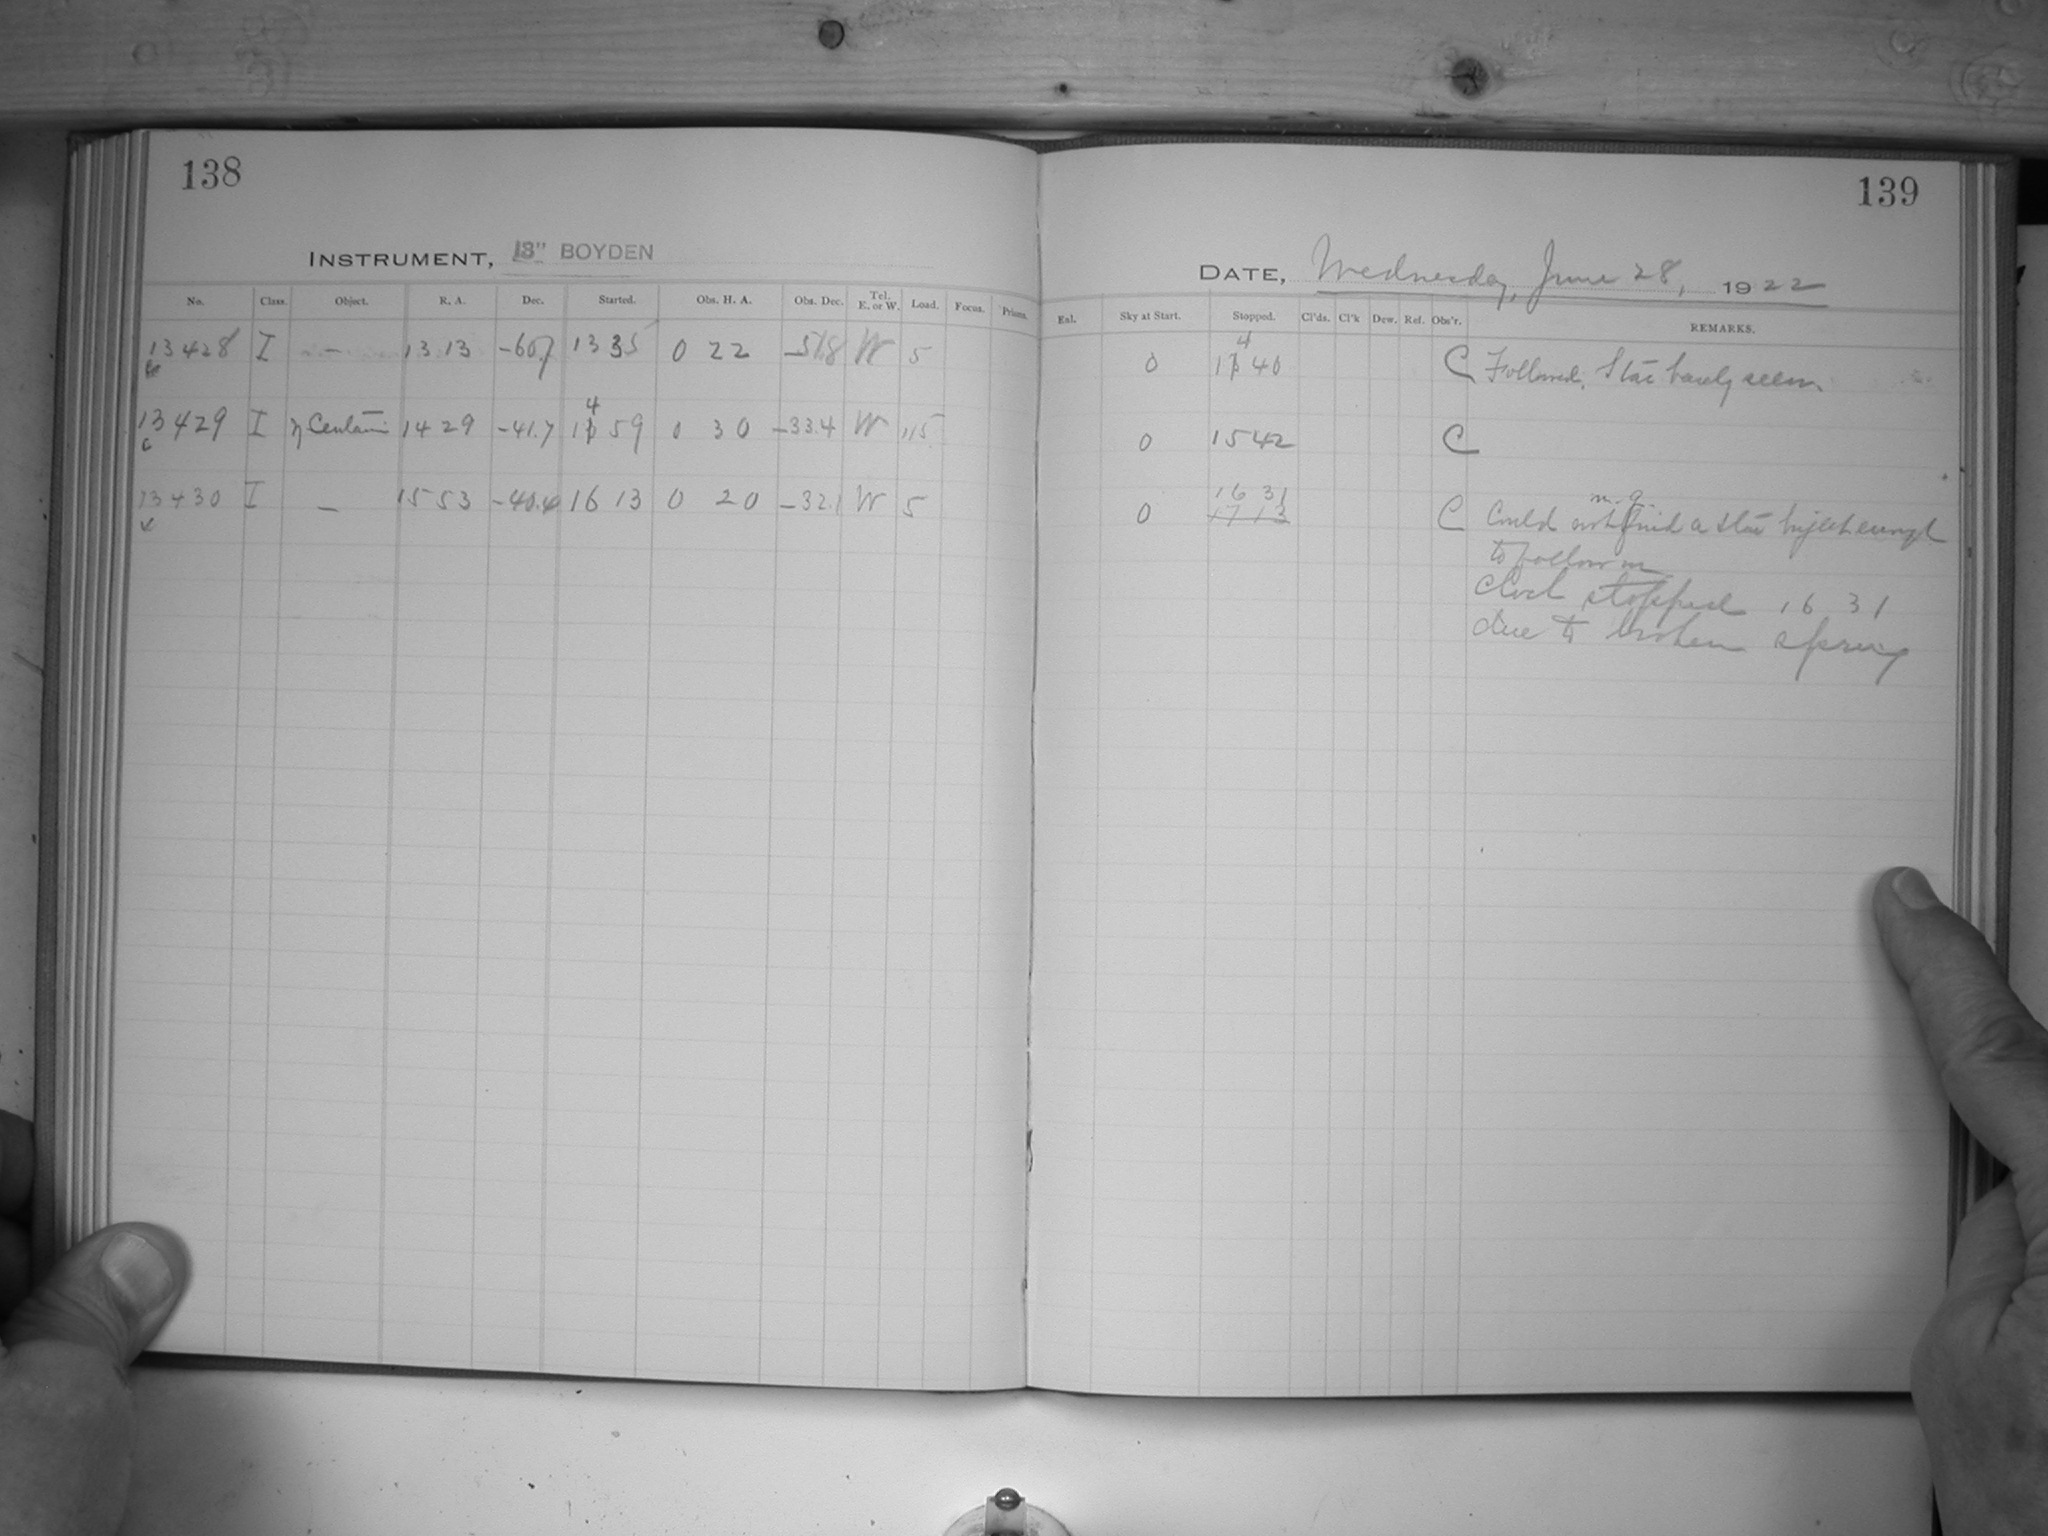 138
INSTRUMENT, 13" BOYDEN
No. Class. Object. R. A. Dec. Started. Obs. H. A. Obs. Dec. Tel. E. or W. Load. Focus. Prisms.
13428 I — 13 13 -60.7 13 35 0 22 -51.8 W 5
13429 I η Centauri 14 29 -41.7 14 59 0 30 -33.4 W 115
13430 I — 15 53 -40.4 16 13 0 20 -32.1 W 5
139
DATE, Wednesday, June 28, 1922
Enl. Sky at Start. Stopped. Cl'ds. Cl'k Dew. Ref. Obs'r. REMARKS.
0 14 40 C Followed, Star barely seen.
0 15 42 C
0 16 31 C Could not find a star bright enough
17 13
to follow on
Clock stopped 16 31
due to broken spring